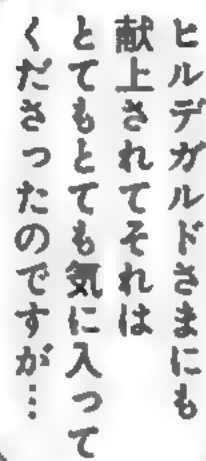 ヒルデガルドさまにも
献上されてそれは
とてもとても気に入って
くださったのですが…